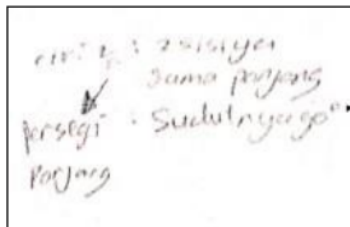 ciri2 : 2 sisiya
sama panjang
persegi : Sudutnya 90°
Panjang